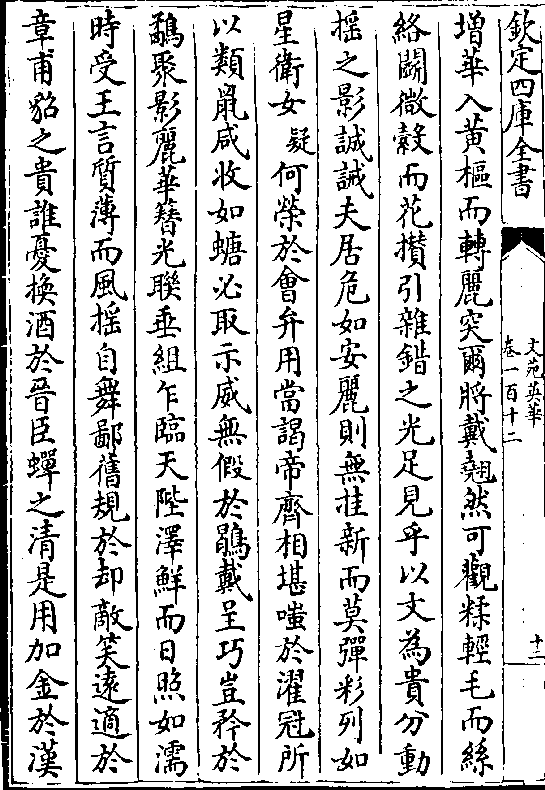 欽定四庫全書
文苑英華
卷一百十二
十二
增華入黄樞而轉麗突爾將戴翹然可觀糅輕毛而絲
絡闢微縠而花攅引雜錯之光足見乎以文為貴分動
揺之影誠誡夫居危如安麗則無挂新而莫彈彩列如
星衛女疑何榮於會弁用當謁帝齊相堪嗤於濯冠所
以類鼠咸收如螗必取示威無假於鶡戴呈巧豈矜於
鷸聚影麗華簮光聯垂組乍臨天陛澤鮮而日照如濡
時受王言質薄而風揺自舞鄙舊規於却敵笑逺適於
章甫貂之貴誰憂換酒於晉臣蟬之清是用加金於漢